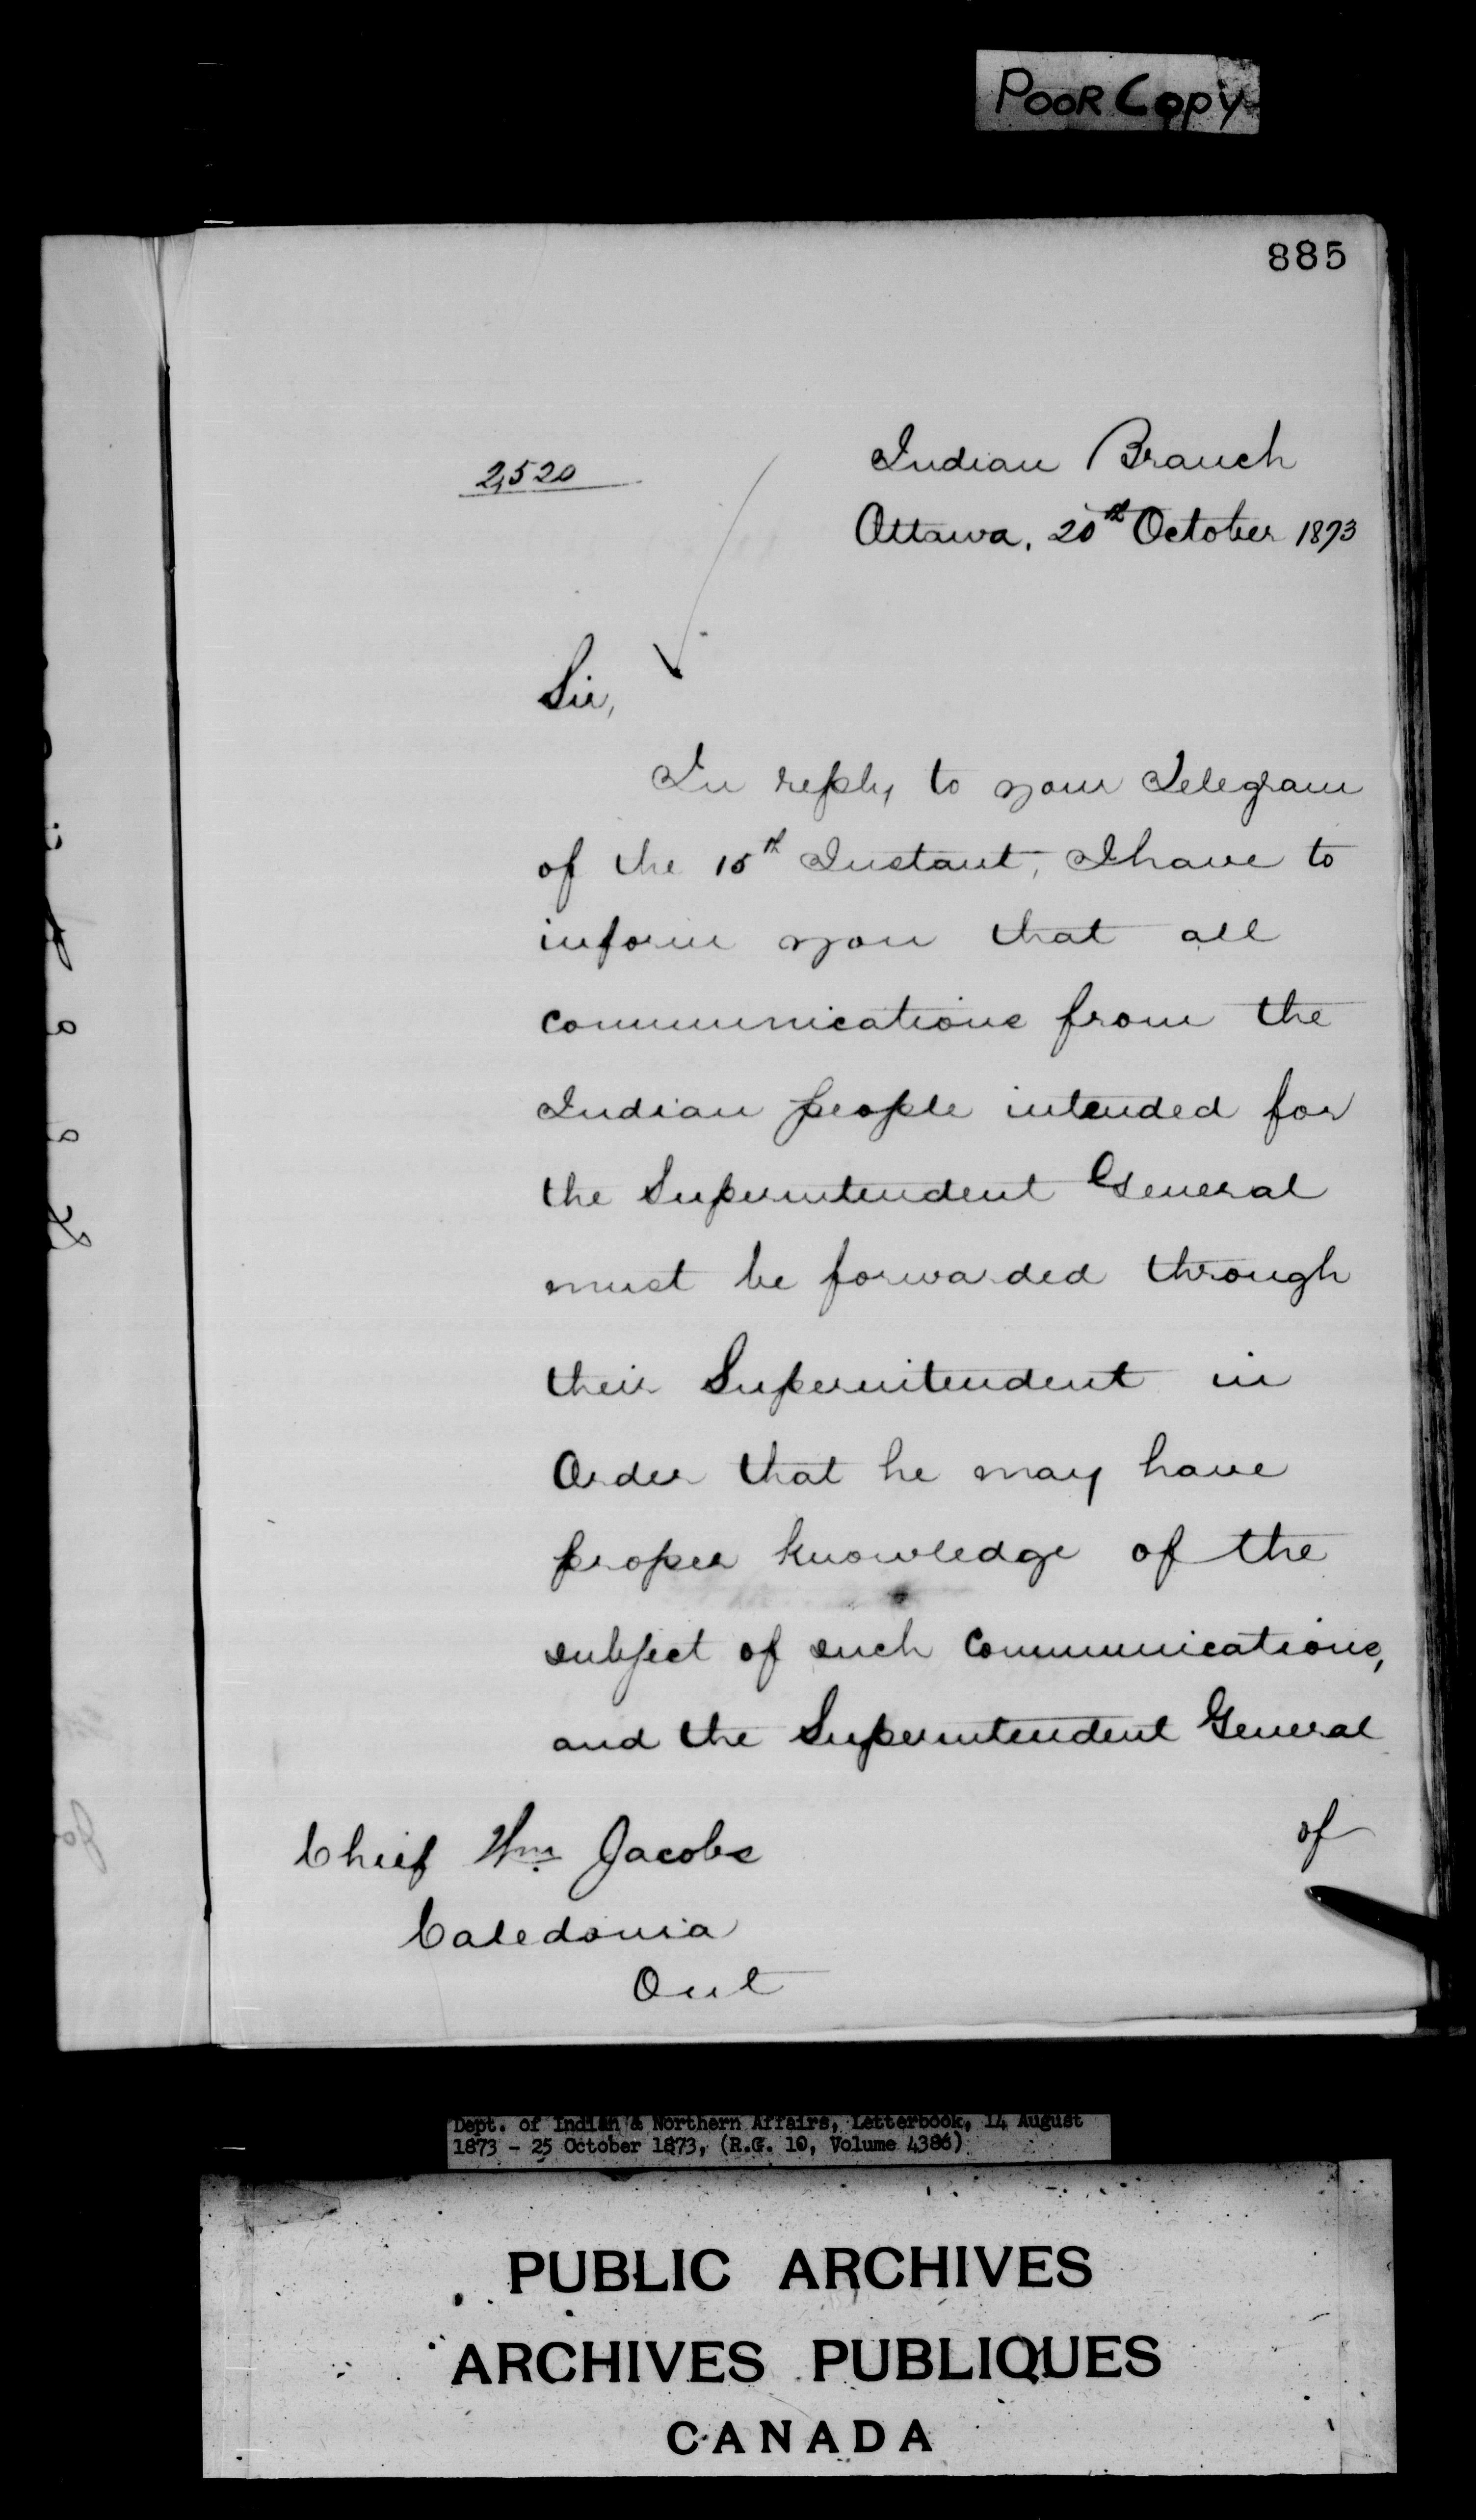 POOR Copy
885
2,520
Indian Branch
Ottawa, 20th October 1873
Sir,
In reply to your Telegram
of the 15th Instant, I have to
inform you that all
communications from the
Indian people intended for
the Superintendent General
must be forwarded through
their Superintendent in
Order that he may have
proper knowledge of the
subject of such Communications,
and the Superintendent General
of
Chief Wm. Jacobs
Caledonia
Ont
Dept. of Indian & Northern Affairs, Letterbook, 14 August
1873 - 25 October 1873, (R.G. 10, Volume 4386)
PUBLIC ARCHIVES
ARCHIVES PUBLIQUES
CANADA